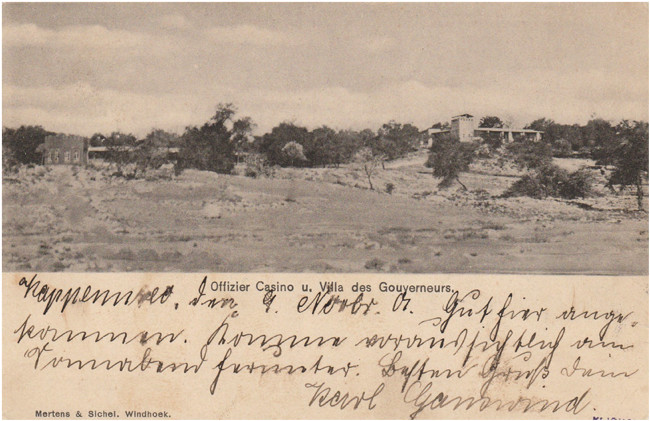 Offizier Casino u. Villa des Gouverneurs.
den 9. Novbr. Gut hier ange-
kommen. Komme voraussichtlich am
Sonnabend herunter. Besten Gruß Dein
Karl
Mertens & Sichel. Windhoek.